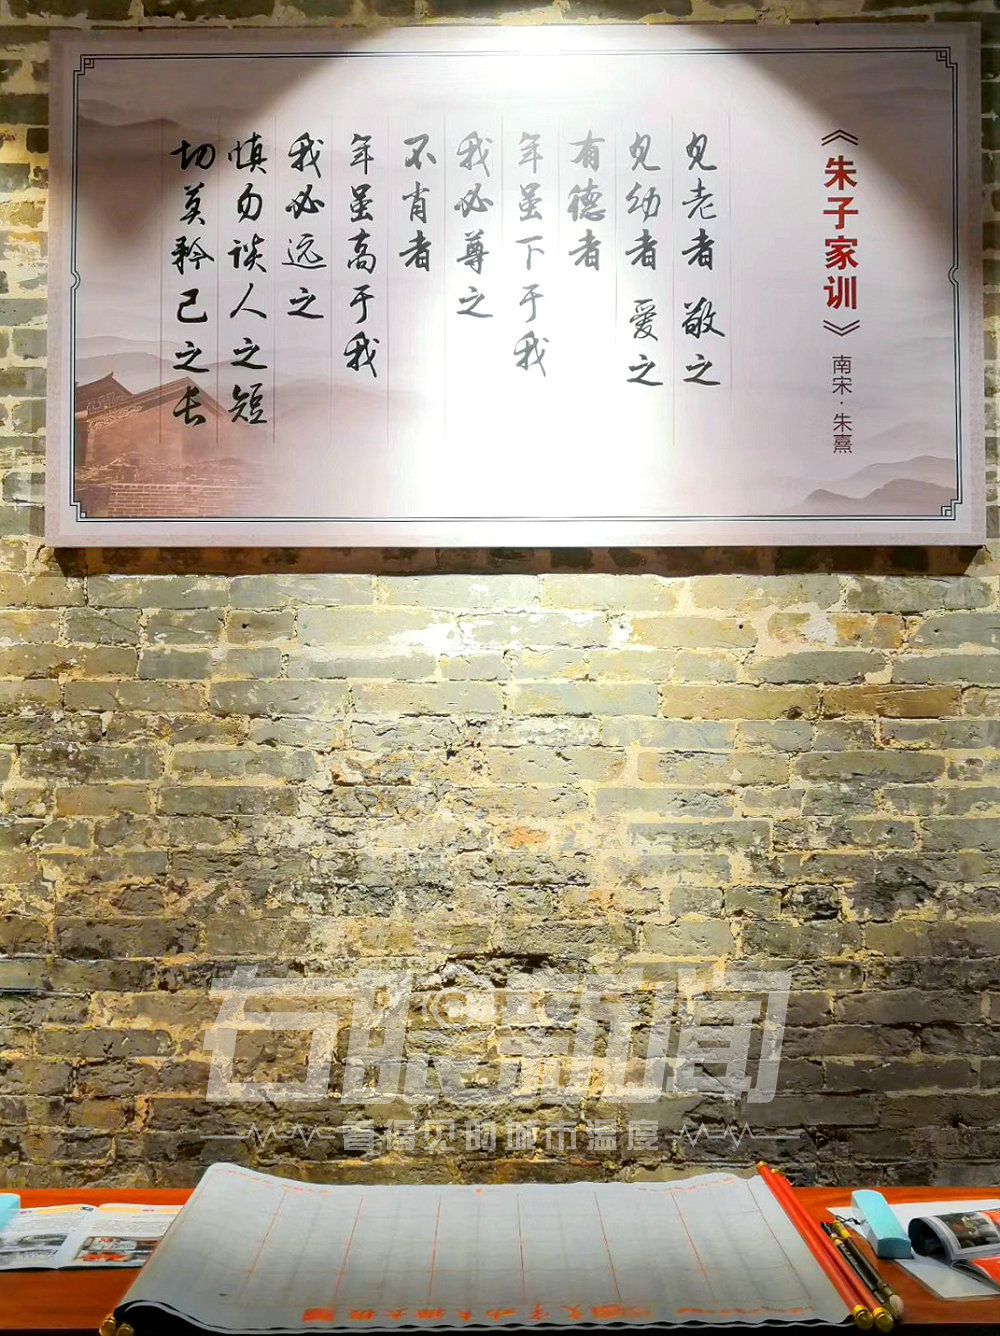 《朱子家训》
南宋·朱熹
见老者 敬之
见幼者 爱之
有德者
年虽下于我
我必尊之
不肖者
年虽高于我
我必远之
慎勿谈人之短
切莫矜己之长
右眼新闻
看得见的城市温度